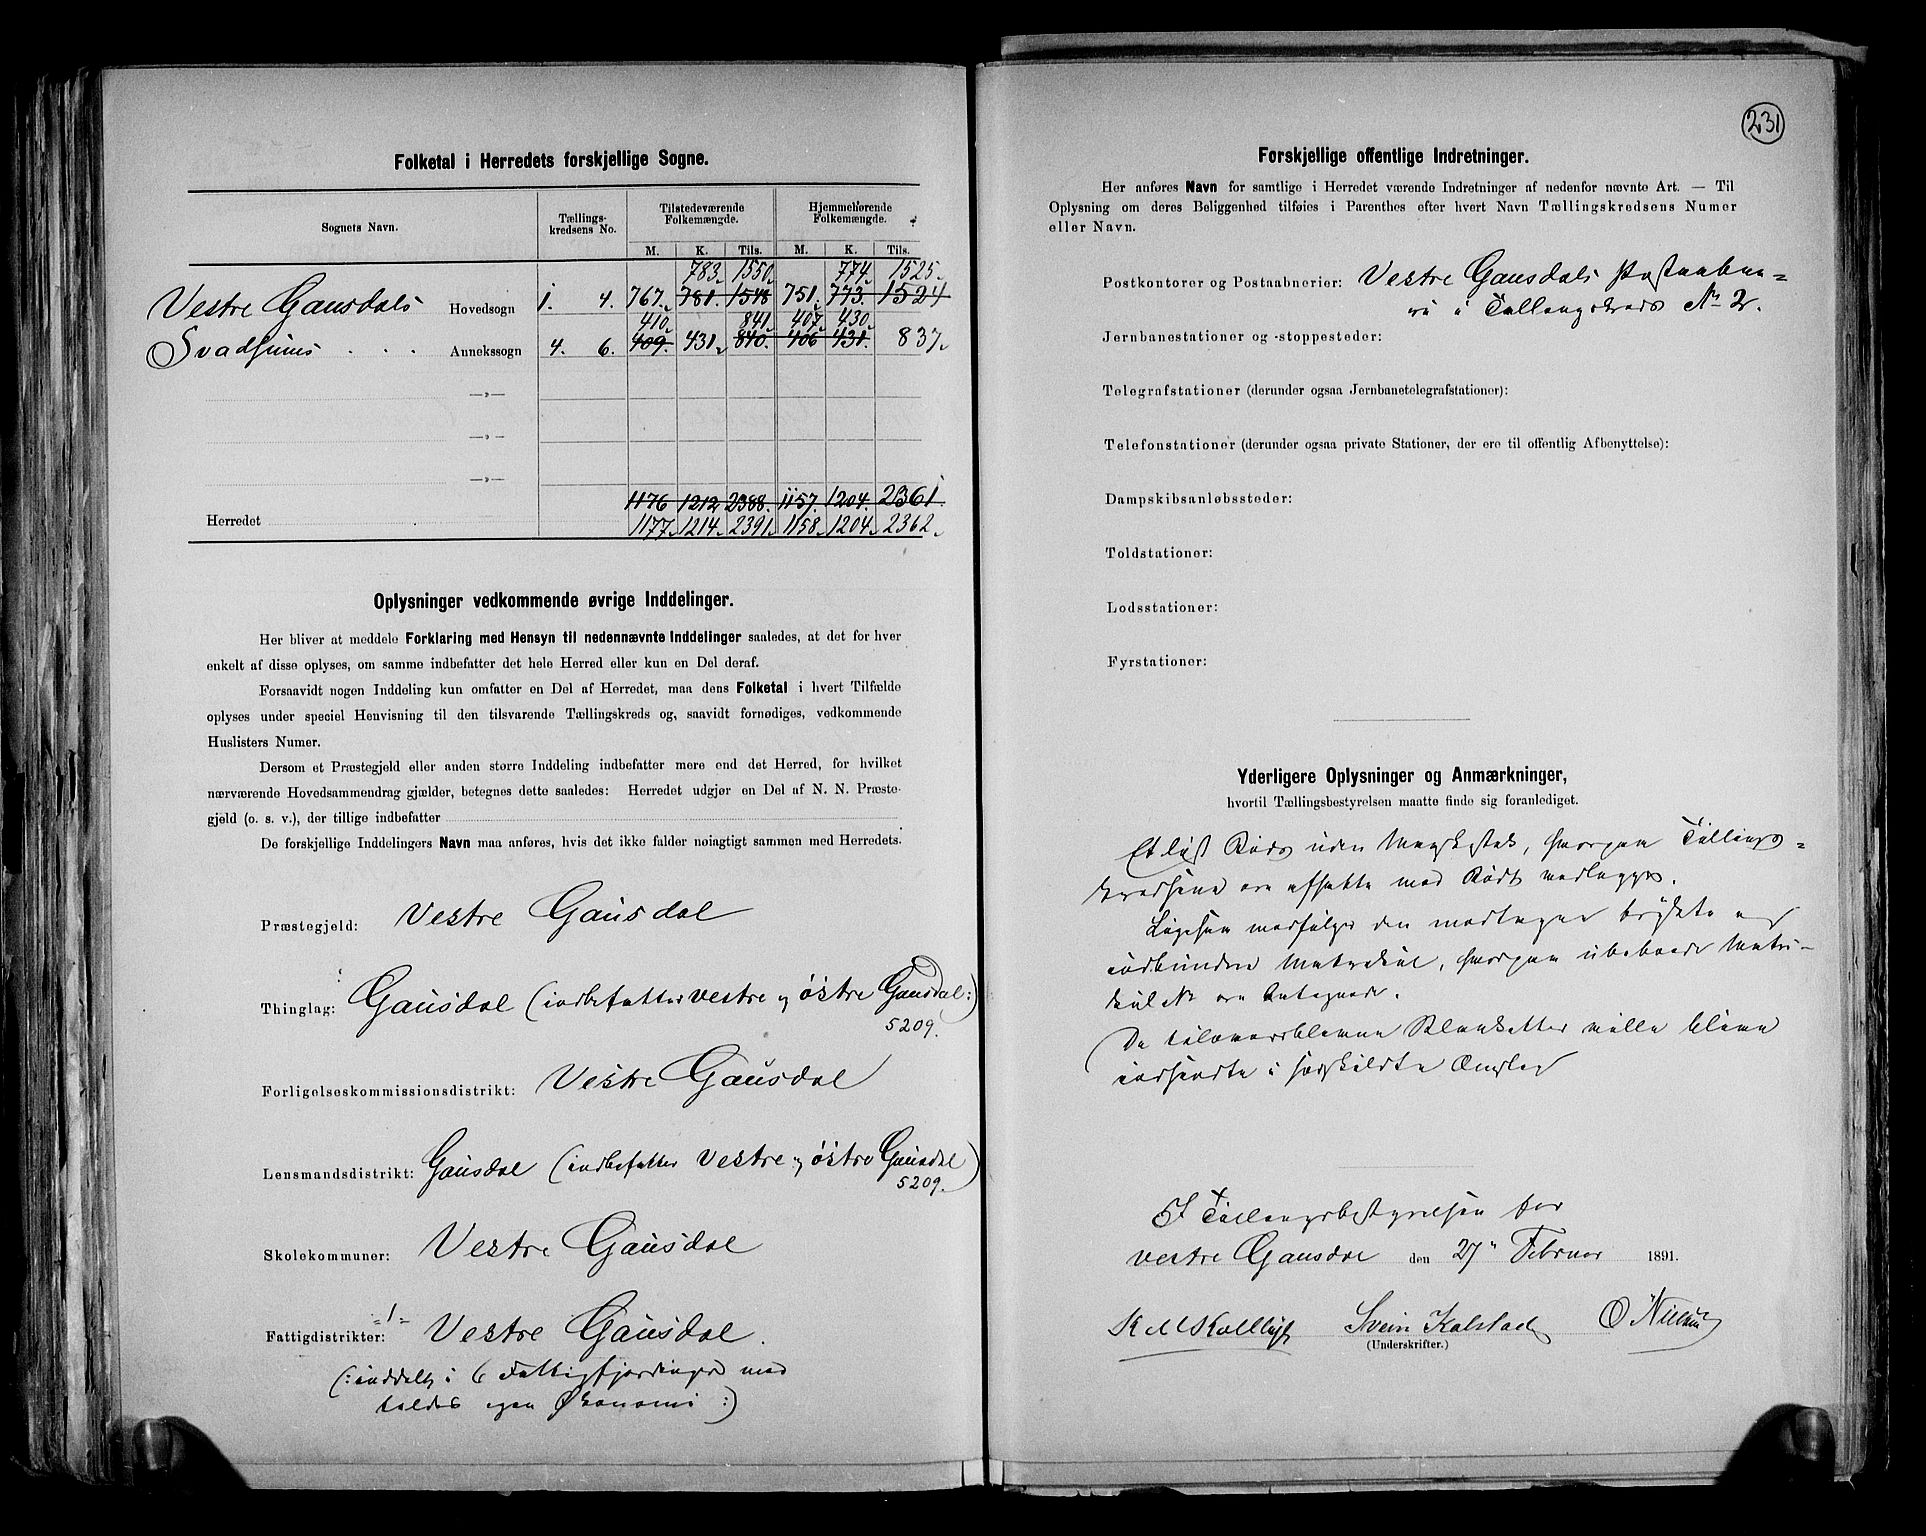 Folketal i Herredets forskjellige Sogne.
Sognets Navn. Tællings- kredsens No. Tilstedeværende Folkemængde. Hjemmehørende Folkemængde.
M. K. Tils. M. K. Tils.
783. 1550. 774. 1525.
Vestre Gausdals Hovedsogn 1. 4. 767. 781. 1548 751. 773. 1524
410. 841. 407. 430.
Svadsums . . . Annekssogn 4. 6. 409. 431. 840. 406 431. 837.
—»—
—»—
—»—
1176 1212 2388. 1157. 1204. 2361
Herredet 1177. 1214. 2391. 1158. 1204. 2362.
Oplysninger vedkommende øvrige Inddelinger.
Her bliver at meddele Forklaring med Hensyn til nedennævnte Inddelinger saaledes, at det for hver
enkelt af disse oplyses, om samme indbefatter det hele Herred eller kun en Del deraf.
Forsaavidt nogen Inddeling kun omfatter en Del af Herredet, maa dens Folketal i hvert Tilfælde
oplyses under speciel Henvisning til den tilsvarende Tællingskreds og, saavidt fornødiges, vedkommende
Huslisters Numer.
Dersom et Præstegjeld eller anden større Inddeling indbefatter mere end det Herred, for hvilket
nærværende Hovedsammendrag gjælder, betegnes dette saaledes: Herredet udgjør en Del af N. N. Præste-
gjeld (o. s. v.), der tillige indbefatter
De forskjellige Inddelingers Navn maa anføres, hvis det ikke falder nøiagtig sammen med Herredets.
Præstegjeld: Vestre Gausdal
Thinglag: Gausdal (indbefatter vestre og østre Gausdal:)
5209.
Forligelseskommissionsdistrikt: Vestre Gausdal
Lensmandsdistrikt: Gausdal (indbefatter Vestre og østre Gausdal)
5209.
Skolekommuner: Vestre Gausdal
Fattigdistrikter: =1= Vestre Gausdal.
(: inddelt i 6 Fattigfjerdinger med
fælles egen Økonomi :)
231
Forskjellige offentlige Indretninger.
Her anføres Navn for samtlige i Herredet værende Indretninger af nedenfor nævnte Art. — Til
Oplysning om deres Beliggenhed tilføies i Parenthes efter hvert Navn Tællingskredsens Numer
eller Navn.
Postkontorer og Postaabnerier: Vestre Gausdals Postaabne=
ri i Tællingskreds No 2.
Jernbanestationer og -stoppesteder:
Telegrafstationer (derunder ogsaa Jernbanetelegrafstationer):
Telefonstationer (derunder ogsaa private Stationer, der ere til offentlig Afbenyttelse):
Dampskibsanløbssteder:
Toldstationer:
Lodsstationer:
Fyrstationer:
Yderligere Oplysninger og Anmærkninger,
hvortil Tællingsbestyrelsen maatte finde sig foranlediget.
Et løst uden hvorpaa Tællings=
kredsene ere afsatte med Rødt vedlægges.
Ligesaa medfølger den modtagne trykte og
indbundne Matrikul, hvorpaa ubeboede Matri-
kul No ere antegnede.
De tiloversblevne Blanketter ville blive
indsendte i særskildte Omslag
I Tællingsbestyrelsen for
vestre Gausdal den 27" Februar 1891.
Svein Kalstad O Nielsen
(Underskrifter.)